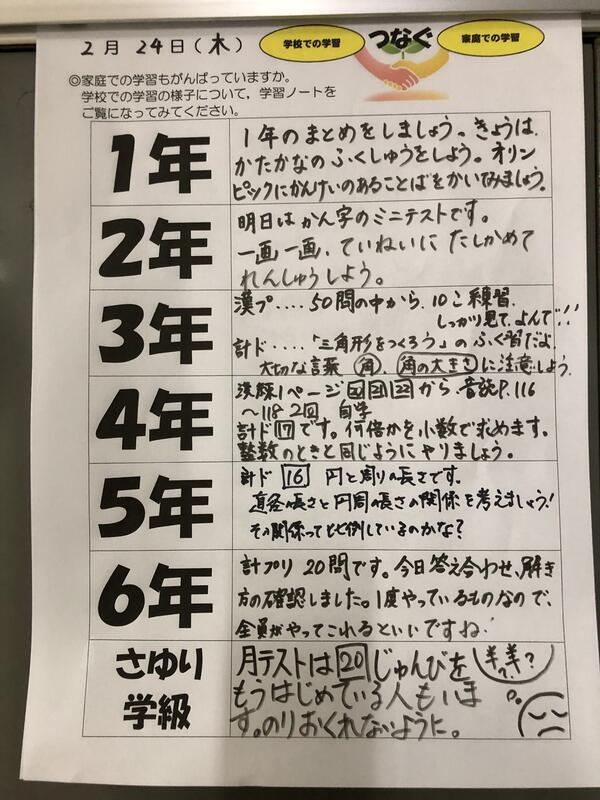 2月 24日(木)
学校での学習
つなぐ
家庭での学習
◎家庭での学習もがんばっていますか。
学校での学習の様子について,学習ノートを
ご覧になってみてください。
1年
1年のまとめをしましょう。きょうは、
かたかなのふくしゅうをしよう。オリン
ピックにかんけいのあることばをかいてみましょう。
2年
明日はかん字のミニテストです。
一画一画、ていねいにたしかめて
れんしゅうしよう。
3年
漢プ‥‥50問の中から、10こ練習。
しっかり見て、よんで!!
計ド‥‥「三角形をつくろう」のふく習だよ。
大切な言葉 角、角の大きさに注意しよう。
4年
漢練1ページ 20 21 22 から、音読P.116
~118 2回 自学
計ド 17 です。何倍かを小数で求めます。
整数のときと同じようにやりましょう。
5年
計ド 16 円と周りの長さです。
直径の長さと円周の長さの関係を考えましょう!
その関係って比例しているのかな?
6年
計プリ 20問です。今日答え合わせ、解き
方の確認しました。1度やっているものなので、
全員がやってこれるといいですね!
さゆり
学級
月テストは 20 じゅんびを
もうはじめている人もいま
す。のりおくれないように。